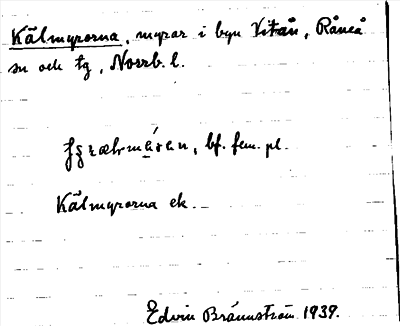 Kälmyrorna, myrar i byn Vitån, Råneå
sn och tg, Norrb. l.
bf. fem. pl.
Kälmyrorna ek.
Edvin Brännström 1939.